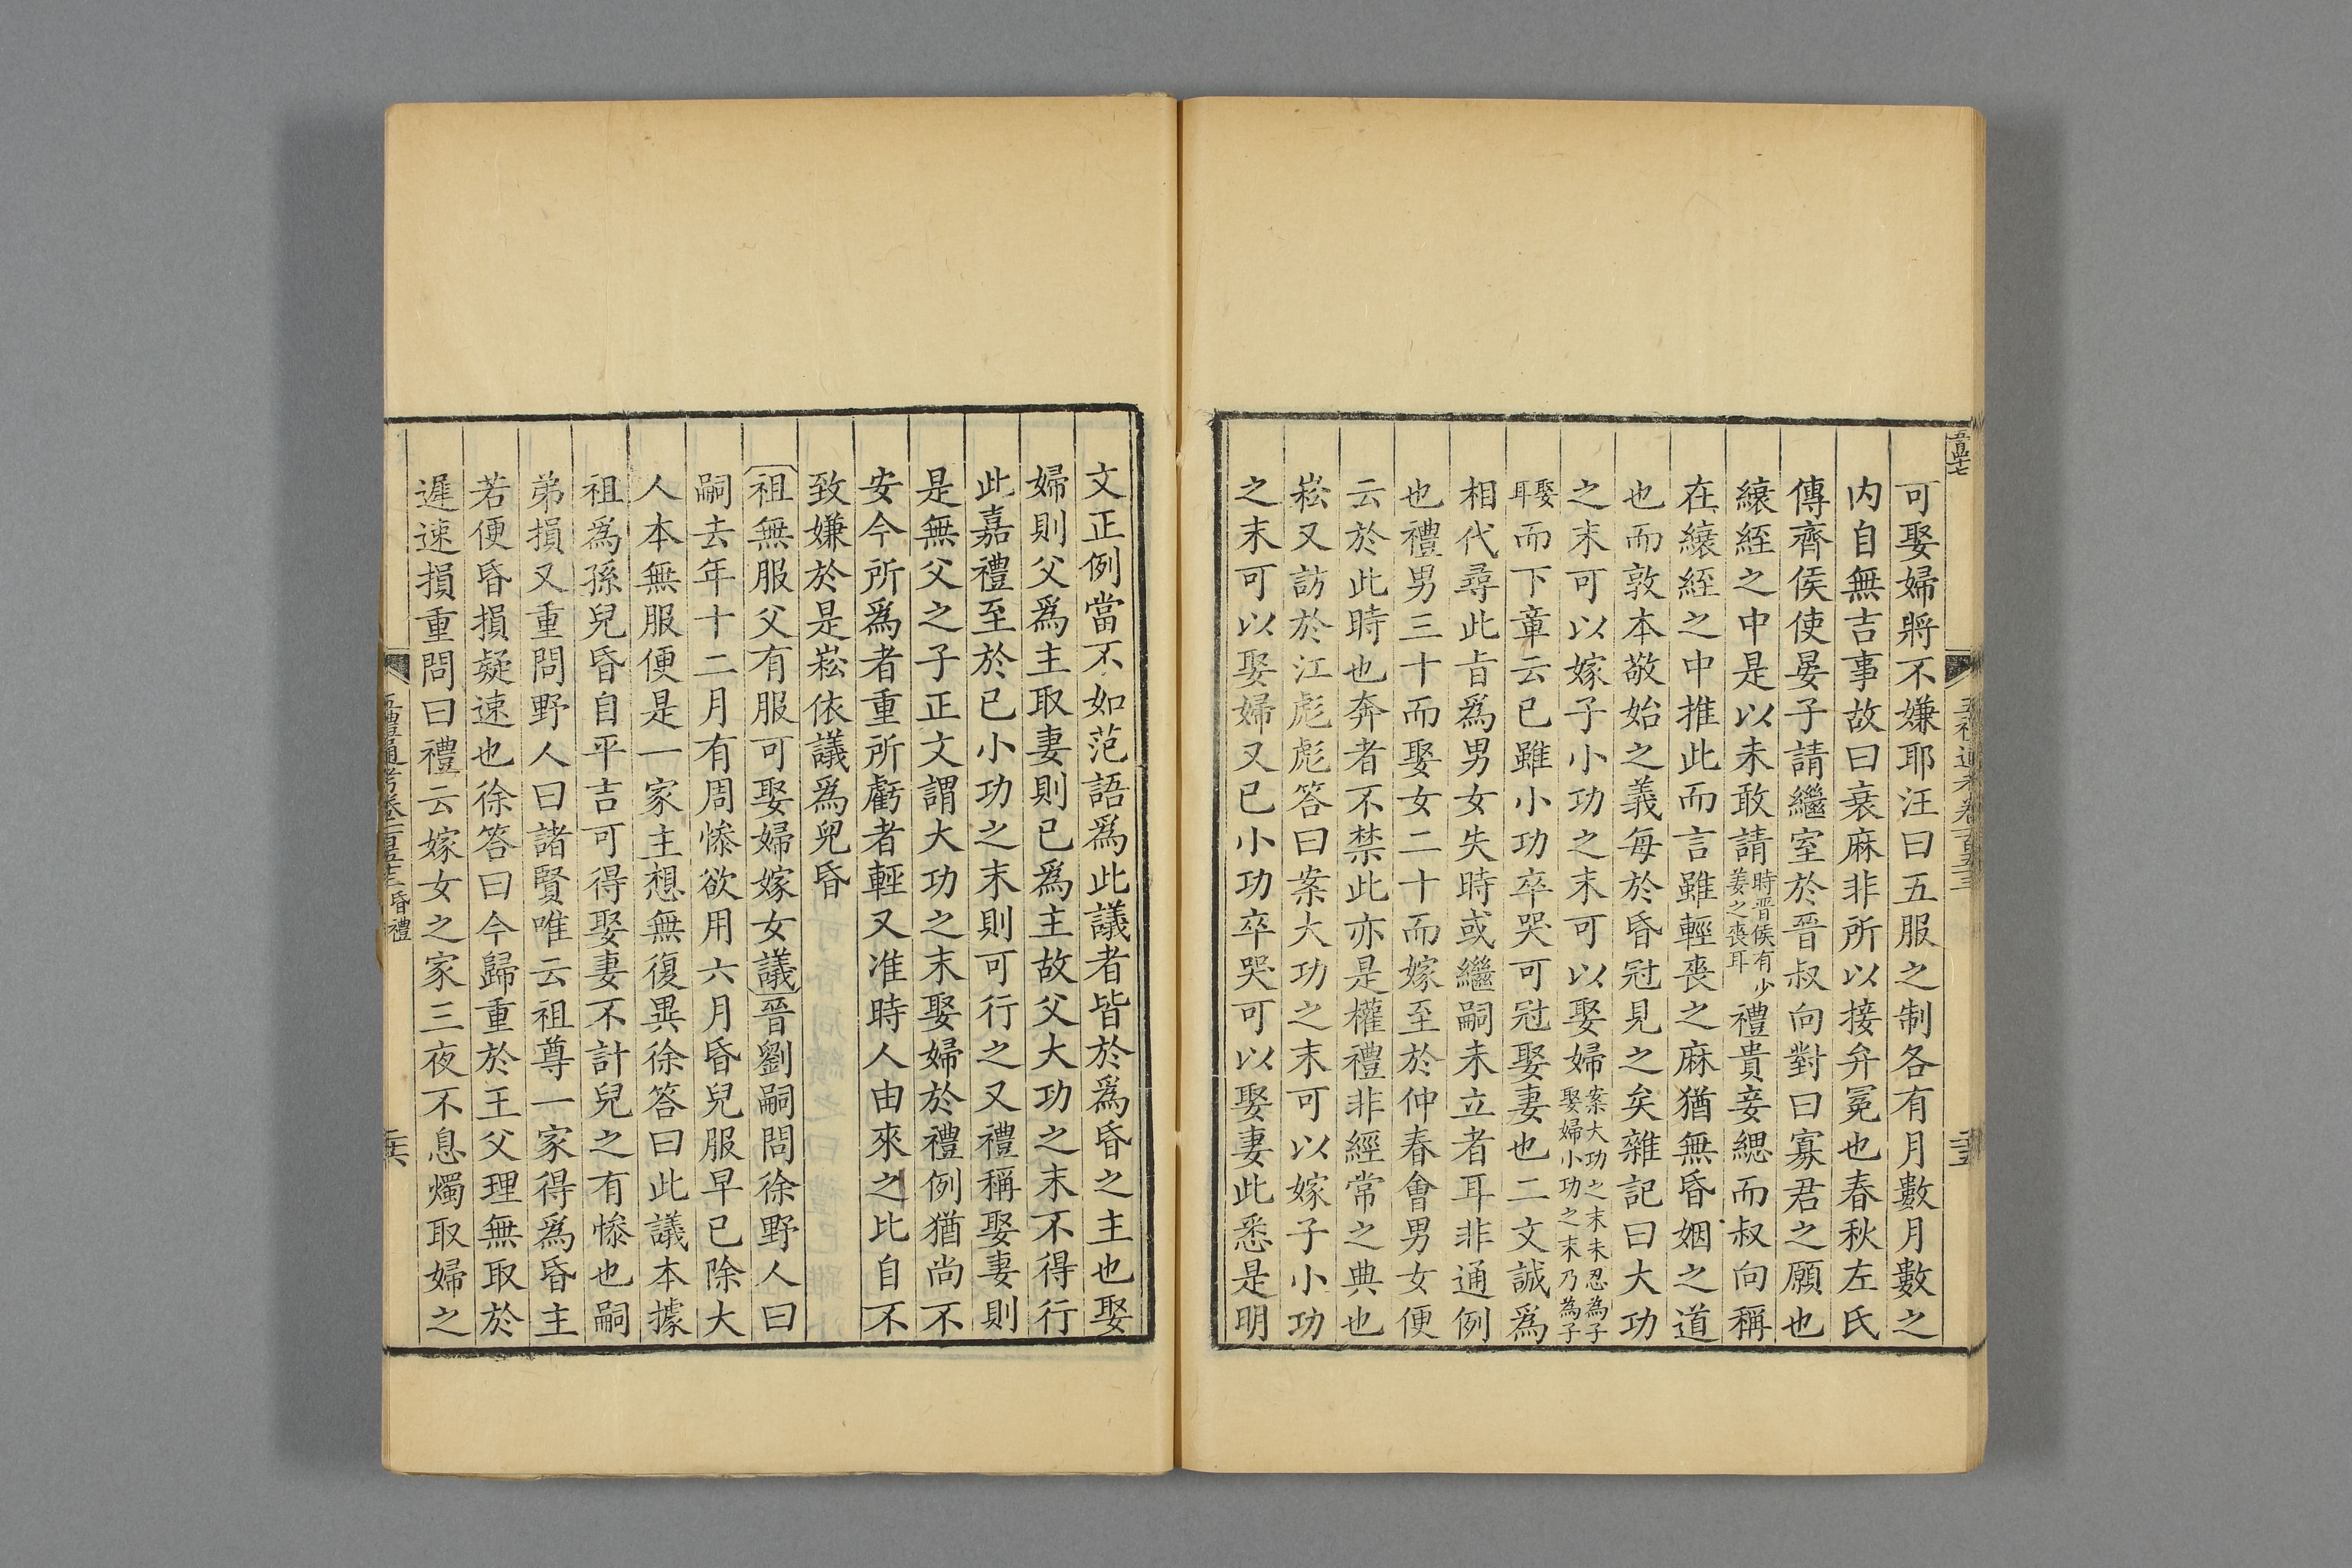 可娶婦將不嫌耶汪曰五服之制各有月數月數之
内自無吉事故曰衰麻非所以接弁冕也春秋左氏
傳齊侯使晏子請繼室於晉叔向對曰寡君之願也
縗絰之中是以未敢請時晉侯有少姜之喪耳禮貴妾緦而叔向稱
在縗絰之中推此而言雖輕喪之麻猶無昏姻之道
也而敦本敬始之義每於昏冠見之矣雜記曰大功
之末可以嫁子小功之末可以娶婦案大功之末未忍為子娶婦小功之末乃為子
娶耳而下章云已雖小功卒哭可冠娶妻也二文誠爲
相代尋此㫖爲男女失時或繼嗣未立者耳非通例
也禮男三十而娶女二十而嫁至於仲春會男女便
云於此時也奔者不禁此亦是權禮非經常之典也
崧又訪於江彪彪答曰案大功之末可以嫁子小功
之末可以娶婦又已小功卒哭可以娶妻此悉是明
文正例當不如范語爲此議者皆於爲昏之主也娶
婦則父爲主取妻則已爲主故父大功之末不得行
此嘉禮至於已小功之末則可行之又禮稱娶妻則
是無父之子正文謂大功之末娶婦於禮例猶尚不
安今所爲者重所虧者輕又准時人由來之比自不
致嫌於是崧依議爲兒昏
祖無服父有服可娶婦嫁女議晉劉嗣問徐野人曰
嗣去年十二月有周慘欲用六月昏兒服早已除大
人本無服便是一家主想無復異徐答曰此議本據
祖爲孫兒昏自平吉可得娶妻不計兒之有慘也嗣
弟損又重問野人曰諸賢唯云祖尊一家得爲昏主
若便昏損疑速也徐答曰今歸重於王父理無取於
遲速損重問曰禮云嫁女之家三夜不息燭取婦之
五禮通考卷一百五十三昏禮